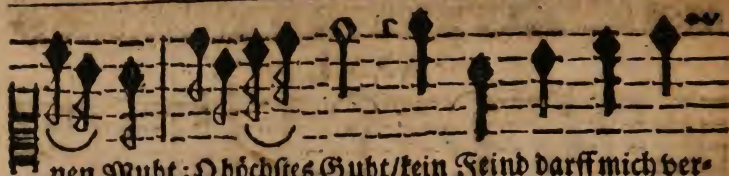 nen Muht: O höchstes Guht/kein Feind darff mich ver-